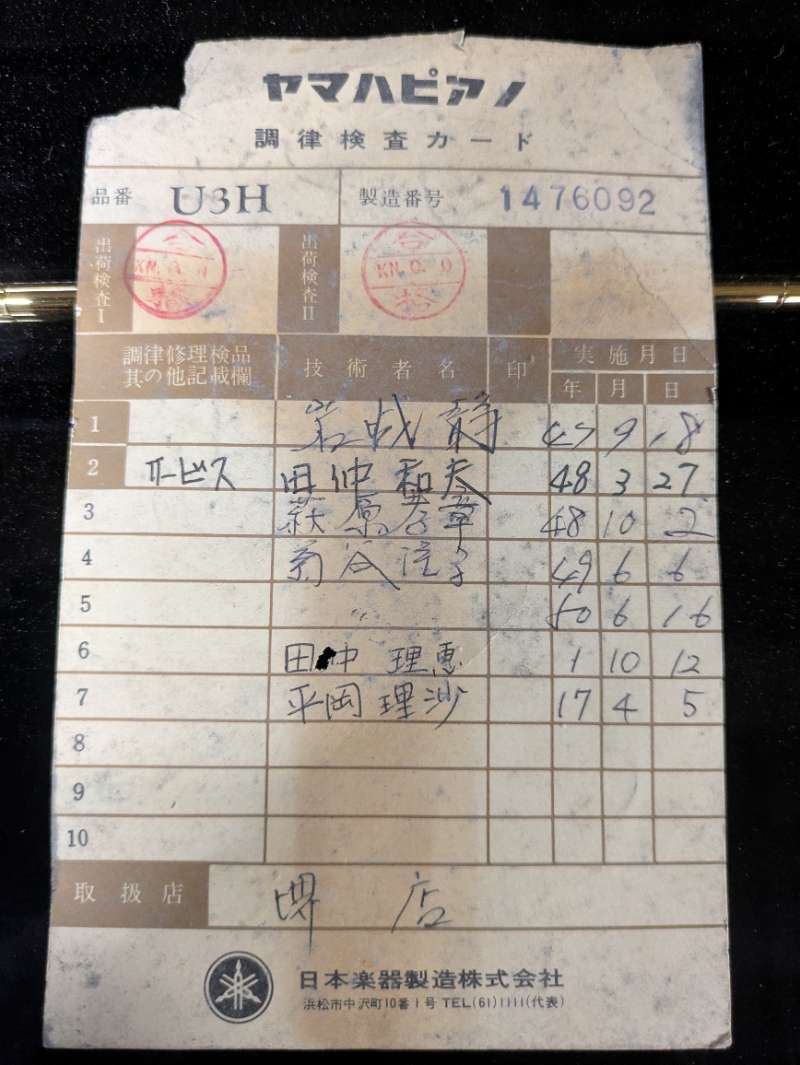 ヤマハピアノ
調律検査カード
品番 U3H 製造番号 1476092
出荷検査I 出荷検査II
調律修理検品 技術者名 印 実施月日
其の他記載欄 年 月 日
1 47 9 18
2 サービス 田仲 和夫 48 3 27
3 萩原 48 10 2
4 49 6 6
5 〃 50 6 16
6 田中 理恵 1 10 12
7 平岡 理沙 17 4 5
8
9
10
取扱店 堺店
日本楽器製造株式会社
浜松市中沢町10番1号 TEL(61)1111(代表)